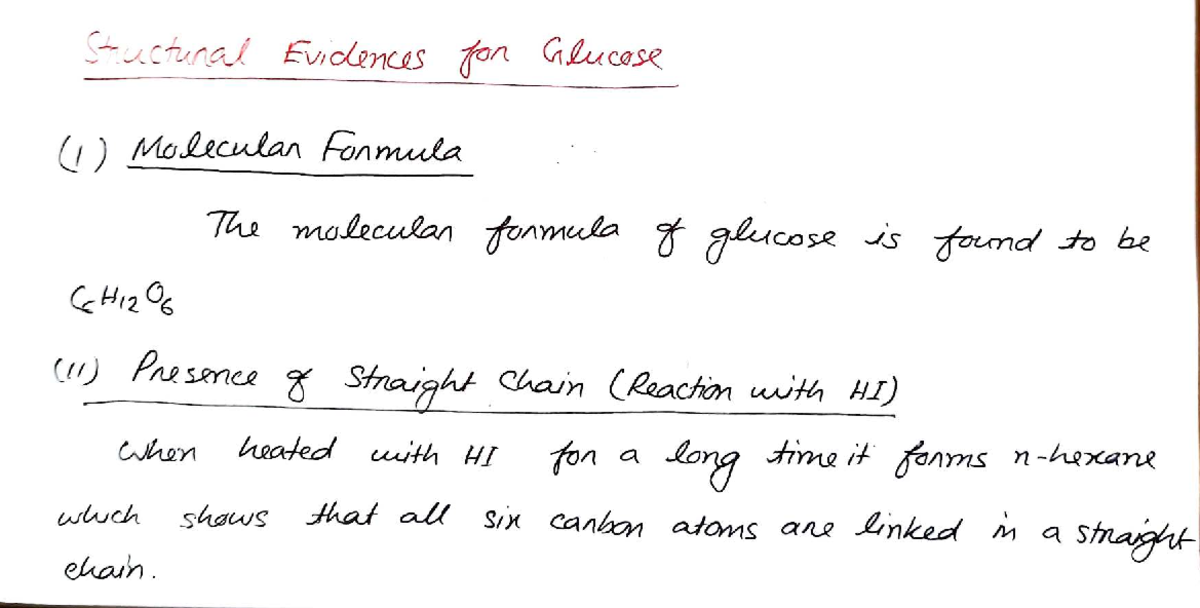 Structural Evidences for Glucose
(I) Molecular Formula
The molecular formula of glucose is found to be
C6H12O6
(II) Presence of Straight Chain (Reaction with HI)
When heated with HI for a long time it forms n-hexane
which shows that all six carbon atoms are linked in a straight
chain.